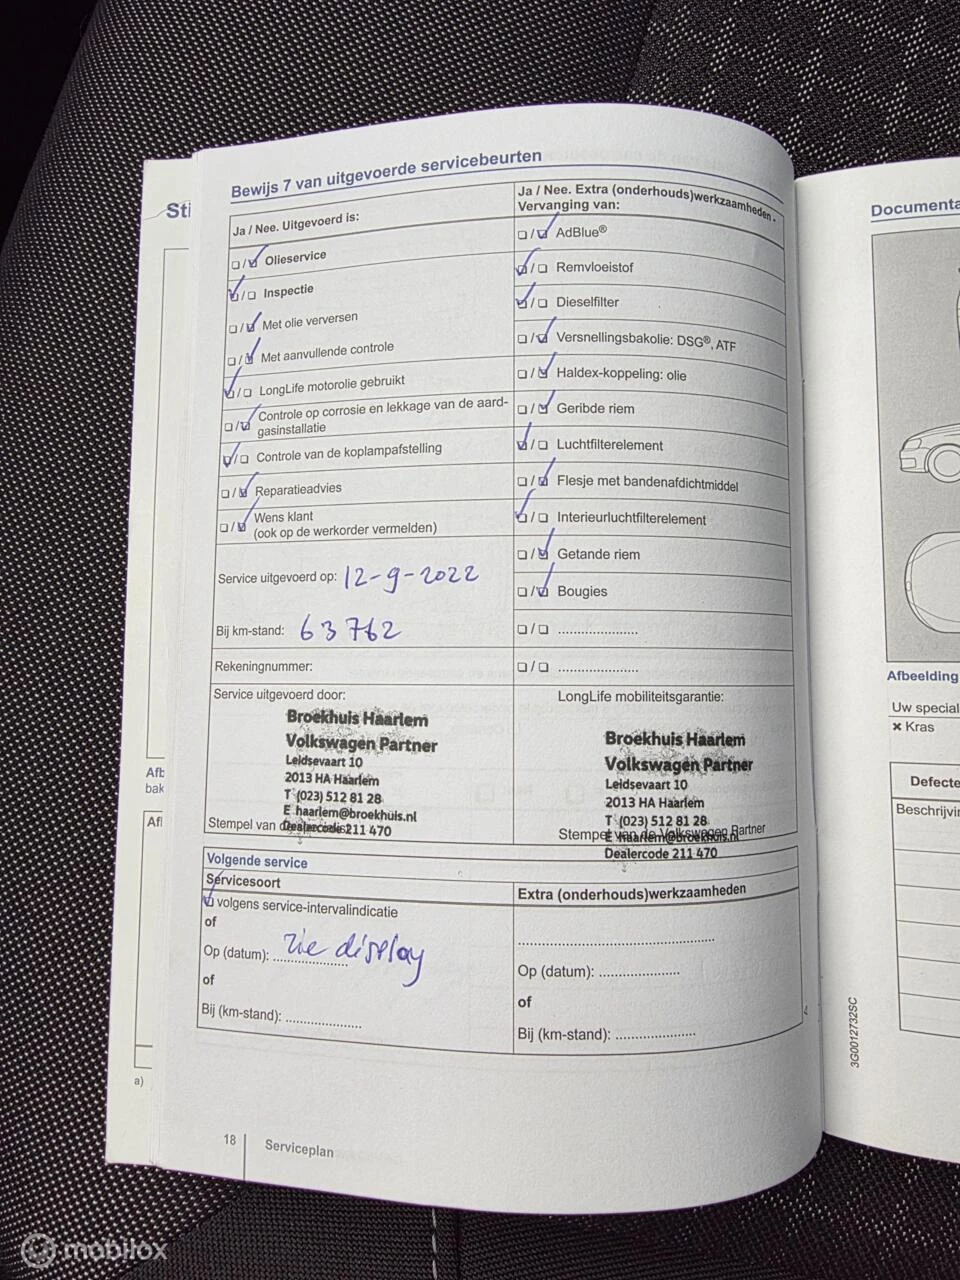 Sti
Bewijs 7 van uitgevoerde servicebeurten
Ja / Nee. Uitgevoerd is:
Olieservice
Inspectie
Met olie verversen
Met aanvullende controle
LongLife motorolie gebruikt
Controle op corrosie en lekkage van de aard-
gasinstallatie
Controle van de koplampafstelling
Reparatieadvies
Wens klant
(ook op de werkorder vermelden)
Service uitgevoerd op: 12-9-2022
Bij km-stand: 63762
Rekeningnummer:
Ja / Nee. Extra (onderhouds)werkzaamheden -
Vervanging van:
AdBlue®
Remvloeistof
Dieselfilter
Versnellingsbakolie: DSG®, ATF
Haldex-koppeling: olie
Geribde riem
Luchtfilterelement
Flesje met bandenafdichtmiddel
Interieurluchtfilterelement
Getande riem
Bougies
Service uitgevoerd door:
Broekhuis Haarlem
Volkswagen Partner
Leidsevaart 10
2013 HA Haarlem
T (023) 512 81 28
E haarlem@broekhuis.nl
Dealercode 211 470
Stempel van de
LongLife mobiliteitsgarantie:
Broekhuis Haarlem
Volkswagen Partner
Leidsevaart 10
2013 HA Haarlem
T (023) 512 81 28
E haarlem@broekhuis.nl
Stempel van de Volkswagen Partner
Dealercode 211 470
Volgende service
Servicesoort
volgens service-intervalindicatie
of
Op (datum): zie display
of
Bij (km-stand):
Extra (onderhouds)werkzaamheden
Op (datum):
of
Bij (km-stand):
18
Serviceplan
Afb
bak
Afl
a)
Documenta
Afbeelding
Uw special
× Kras
Defecte
Beschrijvin
3G0012732SC
mobilox